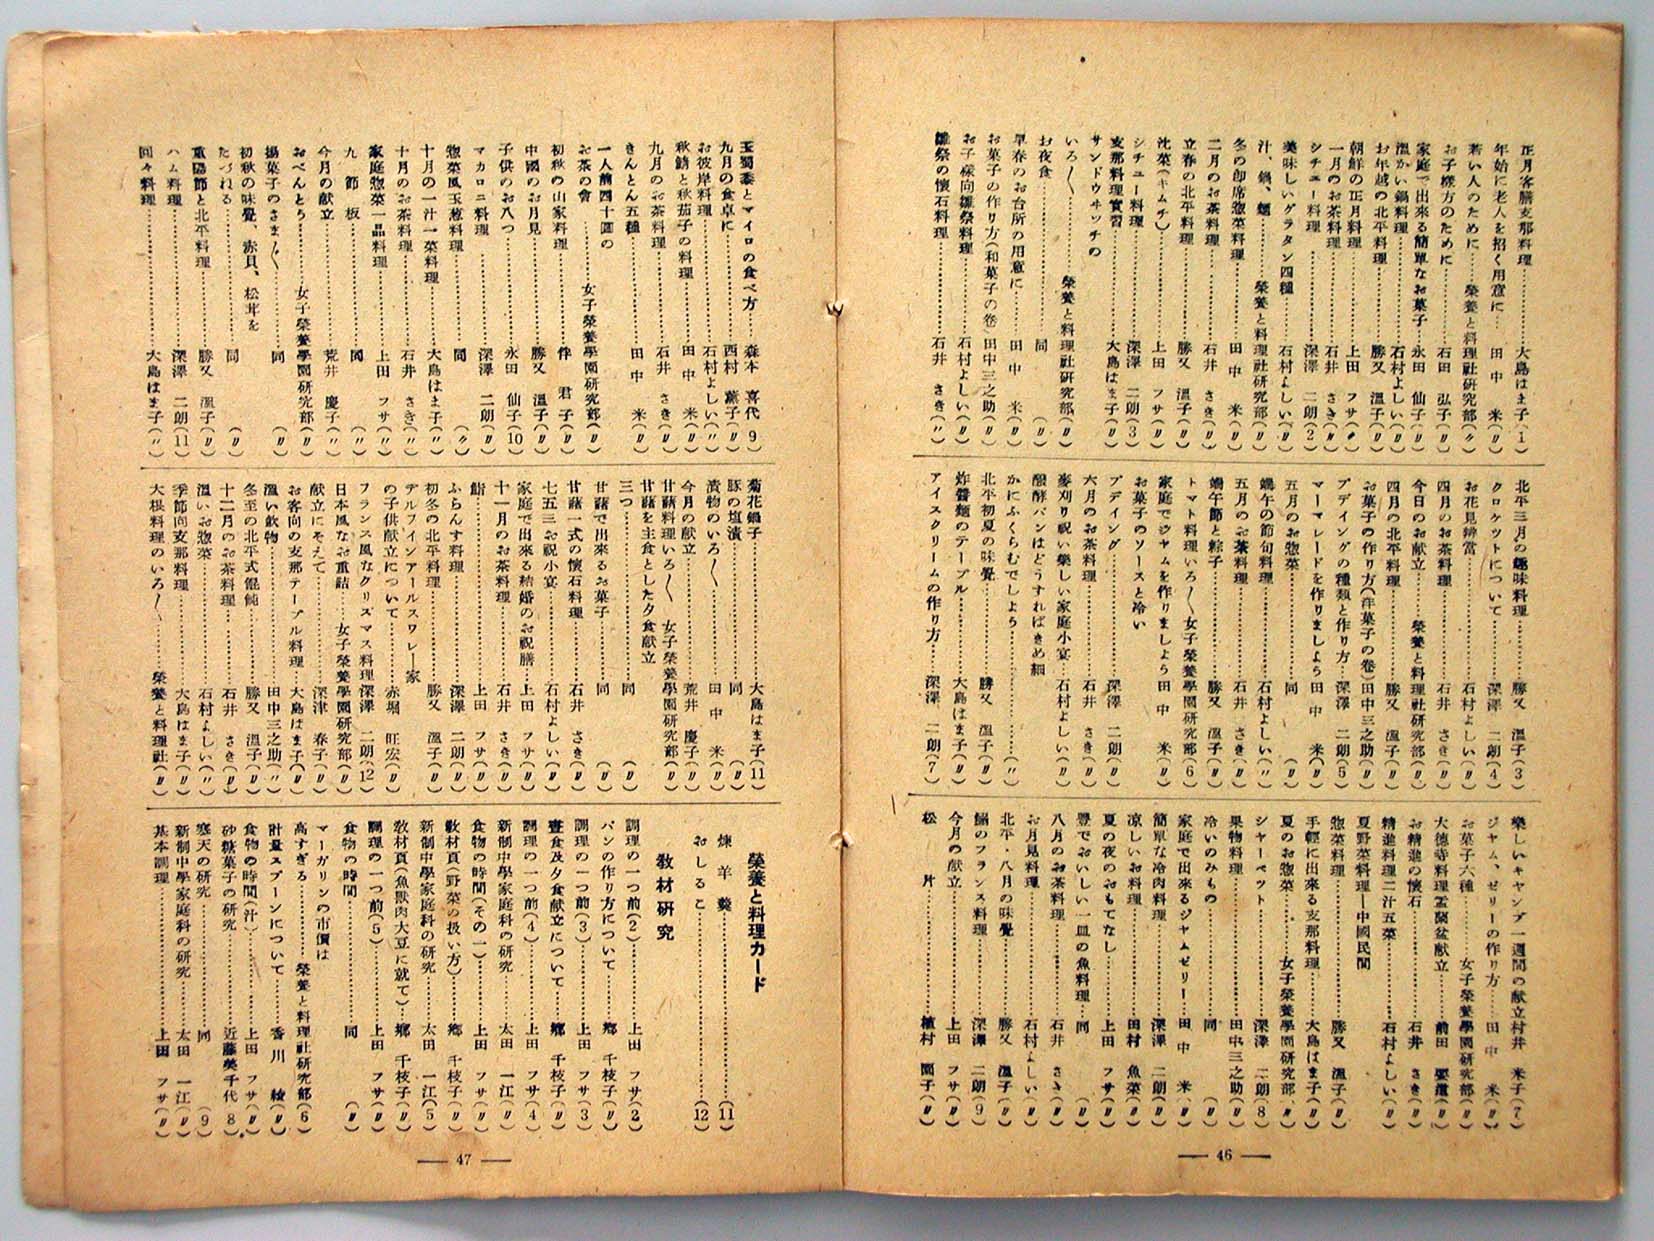 正月客膳支那料理…………大島はま子(1)
年始に老人を招く用意に…田中 米(〃)
若い人のために……栄養と料理社研究部(〃)
お子様方のために…………石田 弘子(〃)
家庭で出来る簡単なお菓子…永田 仙子(〃)
温かい鍋料理…………石村よしい(〃)
お年越の北平料理…………勝又 温子(〃)
朝鮮の正月料理…………上田 フサ(〃)
一月のお茶料理…………石井 さき(〃)
シチュー料理…………深澤 二朗(2)
美味しいグラタン四種………石村よしい(〃)
汁、鍋、麺………栄養と料理社研究部(〃)
冬の即席惣菜料理…………田中 米(〃)
二月のお茶料理…………石井 さき(〃)
立春の北平料理…………勝又 温子(〃)
沈菜(キムチ)…………上田 フサ(〃)
シチュー料理…………深澤 二朗(3)
支那料理實習…………大島はま子(〃)
サンドウヰッチの
いろ〱………栄養と料理社研究部(〃)
お夜食…………同(〃)
早春のお台所の用意に………田中 米(〃)
お菓子の作り方(和菓子の巻)田中三之助(〃)
お子様向雛祭料理…………石村よしい(〃)
雛祭の懐石料理…………石井 さき(〃)
北平三月の趣味料理…………勝又 温子(3)
クロケットについて…………深澤 二朗(4)
お花見辨當…………石村よしい(〃)
四月のお茶料理…………石井 さき(〃)
今日のお献立………栄養と料理社研究部(〃)
四月の北平料理…………勝又 温子(〃)
お菓子の作り方(洋菓子の巻)田中三之助(〃)
プデイングの種類と作り方…深澤 二朗(5)
マーマレードを作りましよう 田中 米(〃)
五月のお惣菜…………同(〃)
端午の節句料理…………石村よしい(〃)
五月のお茶料理…………石井 さき(〃)
端午節と粽子…………勝又 温子(〃)
トマト料理いろ〱女子栄養學園研究部(6)
家庭でジャムを作りましよう 田中 米(〃)
お菓子のソースと冷い
プデイング…………深澤 二朗(〃)
六月のお茶料理…………石井 さき(〃)
麦刈り祝い樂しい家庭小宴…石村よしい(〃)
醗酵パンはどうすればきめ細
かにふくらむでしよう…………(〃)
北平初夏の味覺…………勝又 温子(〃)
炸醤麺のテーブル…………大島はま子(〃)
アイスクリームの作り方……深澤 二朗(7)
樂しいキャンプ一週間の献立村井 米子(7)
ジャム、ゼリーの作り方……田中 米(〃)
お菓子六種………女子栄養學園研究部(〃)
大徳寺料理盂蘭盆献立………前田(〃)
お精進の懐石…………石井 さき(〃)
精進料理二汁五菜…………石村よしい(〃)
夏野菜料理―中國民間
惣菜料理…………勝又 温子(〃)
手輕に出來る支那料理………大島はま子(〃)
夏のお惣菜………女子栄養學園研究部(〃)
シャーベット…………深澤 二朗(8)
果物料理…………田中三之助(〃)
冷いのみもの…………同(〃)
家庭で出來るジャムゼリー…田中 米(〃)
簡單な冷肉料理…………深澤 二朗(〃)
凉しいお料理…………田村 魚菜(〃)
夏の夜のおもてなし…………上田 フサ(〃)
豊でおいしい一皿の魚料理…同(〃)
八月のお茶料理…………石井 さき(〃)
お月見料理…………石村よしい(〃)
北平・八月の味覺…………勝又 温子(〃)
鰯のフランス料理…………深澤 二朗(9)
今月の献立…………上田 フサ(〃)
松片…………植村 園子(〃)
― 46 ―
玉蜀黍とマイロの食べ方……森本 喜代(9)
九月の食卓に…………西村 薫子(〃)
お彼岸料理…………石村よしい(〃)
秋鯖と秋茄子の料理…………田中 米(〃)
九月のお茶料理…………石井 さき(〃)
きんとん五種…………田中 米(〃)
一人前四十圓の
お茶の會………女子栄養學園研究部(〃)
初秋の山家料理…………伴 君子(〃)
中國のお月見…………勝又 温子(〃)
子供のお八つ…………永田 仙子(10)
マカロニ料理…………深澤 二朗(〃)
惣菜風玉葱料理…………同(〃)
十月の一汁一菜料理…………大島はま子(〃)
十月のお茶料理…………石井 さき(〃)
家庭惣菜一品料理…………上田 フサ(〃)
九節板…………同(〃)
今月の献立…………荒井 慶子(〃)
おべんとう………女子栄養學園研究部(〃)
揚菓子のさま〲…………同(〃)
初秋の味覺、赤貝、松茸を
たづねる…………同(〃)
重陽節と北平料理…………勝又 温子(〃)
ハム料理…………深澤 二朗(11)
回々料理…………大島はま子(〃)
菊花鍋子…………大島はま子(11)
豚の塩漬…………同(〃)
漬物のいろ〱…………田中 米(〃)
今月の献立…………荒井 慶子(〃)
甘藷料理いろ〱 女子栄養學園研究部(〃)
甘藷を主食とした夕食献立
三つ…………同(〃)
甘藷で出來るお菓子…………同(〃)
甘藷一式の懐石料理…………石井 さき(〃)
七五三お祝小宴…………石村よしい(〃)
家庭で出來る結婚のお祝膳…上田 フサ(〃)
十一月のお茶料理…………石井 さき(〃)
鮨…………上田 フサ(〃)
ふらんす料理…………深澤 二朗(〃)
初冬の北平料理…………勝又 温子(〃)
デルフインアールスワレー家
の子供献立について…………赤堀 旺宏(〃)
フランス風なクリスマス料理深澤 二朗(12)
日本風なお重詰………女子栄養學園研究部(〃)
献立にそえて…………深津 春子(〃)
お客向の支那テーブル料理…大島はま子(〃)
温い飲物…………田中三之助(〃)
冬至の北平式餛飩…………勝又 温子(〃)
十二月のお茶料理…………石井 さき(〃)
温いお惣菜…………石村よしい(〃)
季節向支那料理…………大島はま子(〃)
大根料理のいろ〱………栄養と料理社(〃)
榮養と料理カード
煉羊羹…………(11)
おしるこ…………(12)
敎材硏究
調理の一つ前(2)…………上田 フサ(2)
パンの作り方について………郷 千枝子(〃)
調理の一つ前(3)…………上田 フサ(3)
晝食及夕食献立について……郷 千枝子(〃)
調理の一つ前(4)…………上田 フサ(4)
新制中學家庭科の研究………太田 一江(〃)
食物の時間(その一)…………上田 フサ(〃)
敎材頁(野菜の扱い方)………郷 千枝子(〃)
新制中學家庭科の研究………太田 一江(5)
敎材頁(魚獸肉大豆に就て)…郷 千枝子(〃)
調理の一つ前(5)…………上田 フサ(〃)
食物の時間…………同(〃)
マーガリンの市價は
高すぎる………栄養と料理社研究部(6)
計量スプーンについて………香川 綾(〃)
食物の時間(汁)…………上田 フサ(〃)
砂糖菓子の研究…………近藤美千代(8)
寒天の研究…………同(9)
新制中學家庭科の研究………太田 一江(〃)
基本調理…………上田 フサ(〃)
― 47 ―